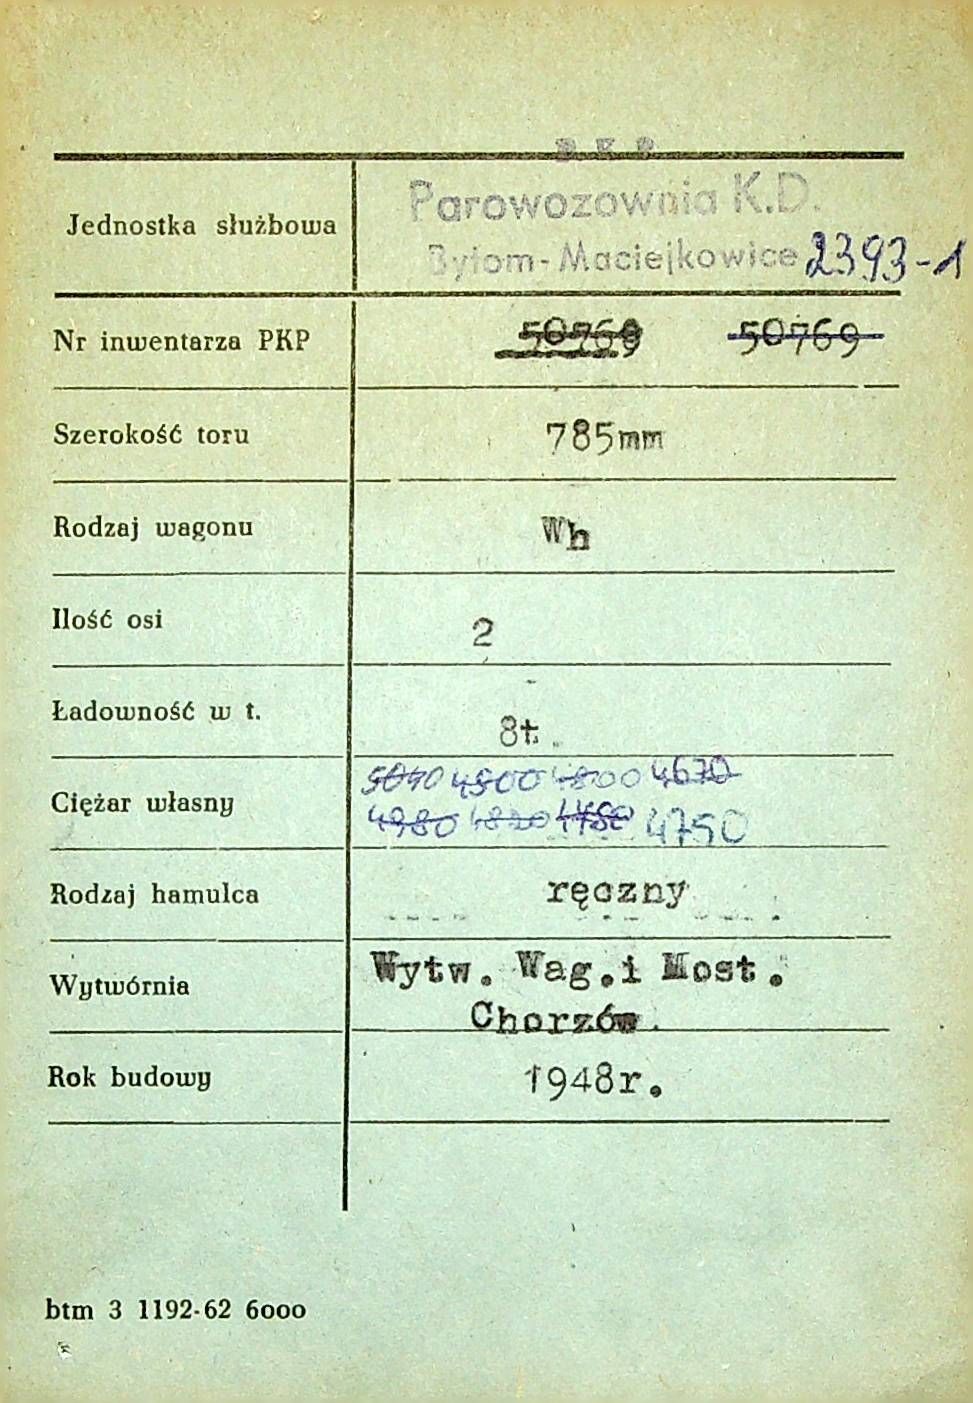 P K P
Parowozownia K.D.
Jednostka służbowa
Bytom-Maciejkowice 2393-1
Nr inwentarza PKP 50769 50769
Szerokość toru 785mm
Rodzaj wagonu Wh
Ilość osi 2
Ładowność w t. 8t.
5040 4900 4800 4670
Ciężar własny
4980 4820 4750
Rodzaj hamulca ręczny
Wytw. Wag.i Most.
Wytwórnia
Chorzów.
Rok budowy 1948r.
btm 3 1192-62 6000